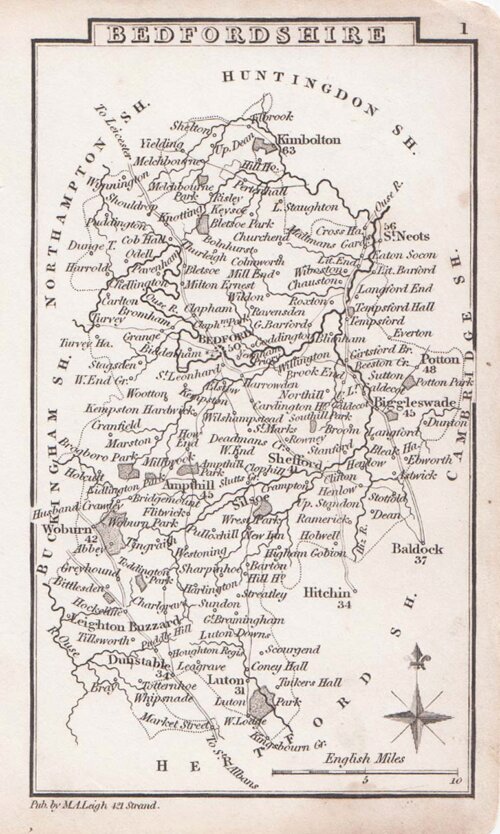 BEDFORDSHIRE
1
HUNTINGDON SH.
NORTHAMPTON SH.
BUCKINGHAM SH.
CAMBRIDGE SH.
HERTFORD SH.
To Leicester
Tilbrook
Shelton
Kimbolton
63
Yielding
Up. Dean
Melchbourne
Hill Ho.
Wymington
Melchbourne
Park
Pertenhall
Shouldrow
Risley
Ouse R.
Knotting
Keysoe
L. Staughton
Puddington
Bletsoe Park
56
Cross Ha.
St. Neots
Cob Hall
Churchend
Dunge T.
Bolnhurst
Odell
Thurleigh
Colmworth
Lit. End
Eaton Socon
Harrold
Pavenham
Bletsoe
Mill End
Wibroston
Lit. Barford
Milton Ernest
Chauston
Langford End
Carlton
Ouse R.
Wildon
Roxton
Clapham
Ravensden
Tempsford Hall
Turvey
Bromham
G. Barford
Tempsford
Everton
Grange
BEDFORD
50
Turvey Ha.
Biddenham
Willington
Girtsford Br.
Potton
48
Stagsden
St. Leonhard
Brook End
Beeston Gr.
Sutton
W. End Gr.
Harrowden
Potton Park
Elstow
Northill
Wootton
Kempston
Biggleswade
45
Kempston Hardwick
Cardington
Wilshampstead
Southill Park
Dunton
Cranfield
St. Marks
Broom
Langford
How End
Deadmans Cr.
Marston
W. End
Rowney
Stanford
Bleak Ha.
Brogboro Park
Shefford
41
Ebworth
Millbrook
Ampthill Park
Clophill
Henlow
Astwick
Holcut
Lidlington
Clifton
Ampthill
45
Crampton
Henlow
Bridgemount
Silsoe
Up. Stondon
Stotfold
Husband Crawley
Flitwick
Dean
Woburn
42
Woburn Park
Wrest Park
Ramerick
Abbey
Tingrath
Pulloxhill
New Inn
Holwell
Baldock
37
Westoning
Higham Gobion
Greyhound
Toddington Park
Sharpinhoe
Barton
Hill Ho.
Bittlesden
Harlington
Streatley
Hitchin
34
Hockcliffe
Chartgrave
Sundon
Leighton Buzzard
Gt. Bramingham
R. Ouse
Luton Downs
Tillsworth
Puddle Hill
Houghton Regis
Scourgend
Dunstable
34
Leagrave
Coney Hall
Totternhoe
Luton
31
Tinkers Hall
Whipsnade
Luton
Park
Market Street
W. Lodge
Kingsbourn Gr.
To St. Albans
English Miles
5
10
Pub. by M.A. Leigh 421 Strand.